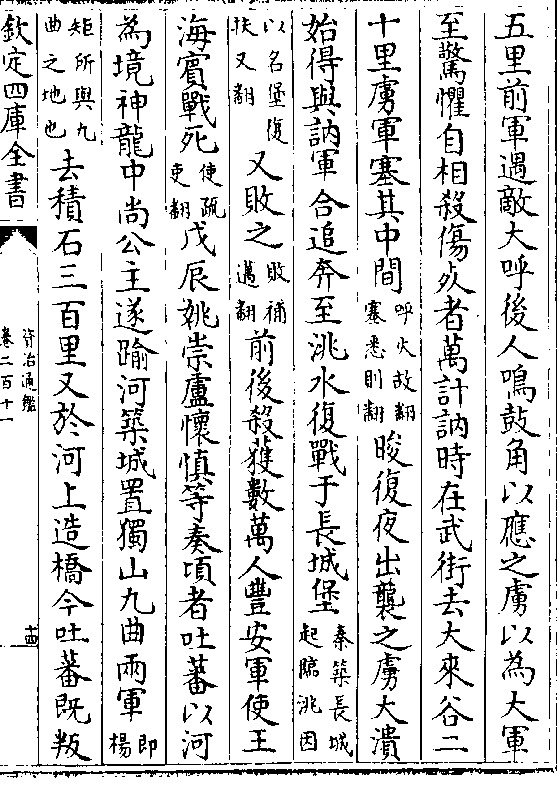 五里前軍遇敵大呼後人鳴鼓角以應之虜以為大軍
至驚懼自相殺傷死者萬計訥時在武街去大來谷二
十里虜軍塞其中間呼火故翻塞悉則翻晙復夜出襲之虜大潰
始得與訥軍合追奔至洮水復戰于長城堡秦築長城起臨洮因
以名堡復扶又翻又敗之敗補邁翻前後殺獲數萬人豐安軍使王
海賓戰死使疏吏翻戊辰姚崇盧懷慎等奏頃者吐蕃以河
為境神龍中尚公主遂踰河築城置獨山九曲兩軍即楊
矩所與九曲之地也去積石三百里又於河上造橋今吐蕃既叛
欽定四庫全書
資治通鑑
卷二百十一
十四